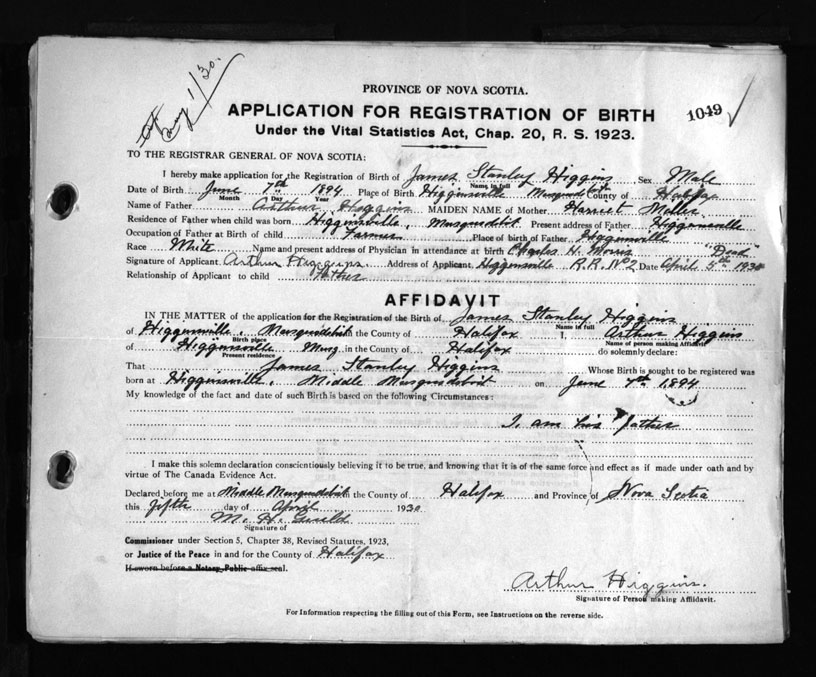 May 1/30.
PROVINCE OF NOVA SCOTIA.
APPLICATION FOR REGISTRATION OF BIRTH
1049
Under the Vital Statistics Act, Chap. 20, R. S. 1923.
TO THE REGISTRAR GENERAL OF NOVA SCOTIA:
I hereby make application for the Registration of Birth of James Stanley Higgins Sex Male
Name in full
Date of Birth June 7th 1894 Place of Birth Higginsville Musquodoboit County of Halifax
Month Day Year
Name of Father Arthur Higgins MAIDEN NAME of Mother Harriet Miller
Residence of Father when child was born Higginsville, Musquodoboit Present address of Father Higginsville
Occupation of Father at Birth of child Farmer Place of birth of Father Higginsville
Race White Name and present address of Physician in attendance at birth Charles H. Morris "Dead"
Signature of Applicant Arthur Higgins Address of Applicant Higginsville R.R. No 2 Date April 5th 1930
Relationship of Applicant to child Father
AFFIDAVIT
IN THE MATTER of the application for the Registration of the Birth of James Stanley Higgins
Name in full
of Higginsville, Musquodoboit in the County of Halifax I, Arthur Higgins
Birth place Name of person making Affidavit
of Higginsville Musq in the County of Halifax do solemnly declare:
Present residence
That James Stanley Higgins Whose Birth is sought to be registered was
born at Higginsville, Middle Musquodoboit on June 7th 1894
My knowledge of the fact and date of such Birth is based on the following Circumstances:
I am his father
I make this solemn declaration conscientiously believing it to be true, and knowing that it is of the same force and effect as if made under oath and by
virtue of The Canada Evidence Act.
Declared before me at Middle Musquodoboit the County of Halifax and Province of Nova Scotia
this fifth day of April 1930
M. H. Guild
Signature of
Commissioner under Section 5, Chapter 38, Revised Statutes, 1923,
or Justice of the Peace in and for the County of Halifax
If sworn before a Notary Public affix seal.
Arthur Higgins.
Signature of Person making Affidavit.
For Information respecting the filling out of this Form, see Instructions on the reverse side.